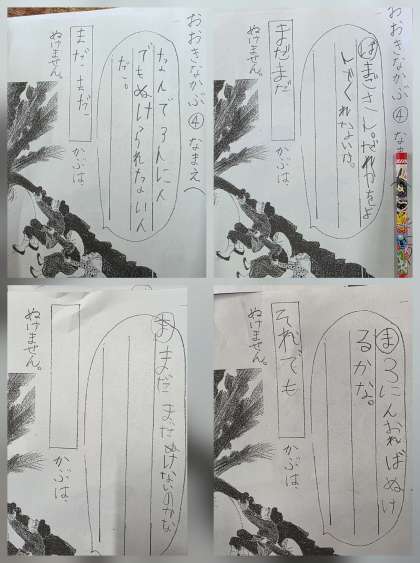 おおきなかぶ④ なまえ(
なんでろんにん
でもぬけられないん
だ。
まだ、まだ
かぶは、
ぬけません。
おおきなかぶ④ なま
ままぎさん。だれかをよ
んでくれなぁい。
まだまだ
かぶは、
ぬけません。
ま まだまだぬけないのかな
かぶは、
ぬけません。
ま ろにんおればぬけ
るかな。
それでも
かぶは、
ぬけません。